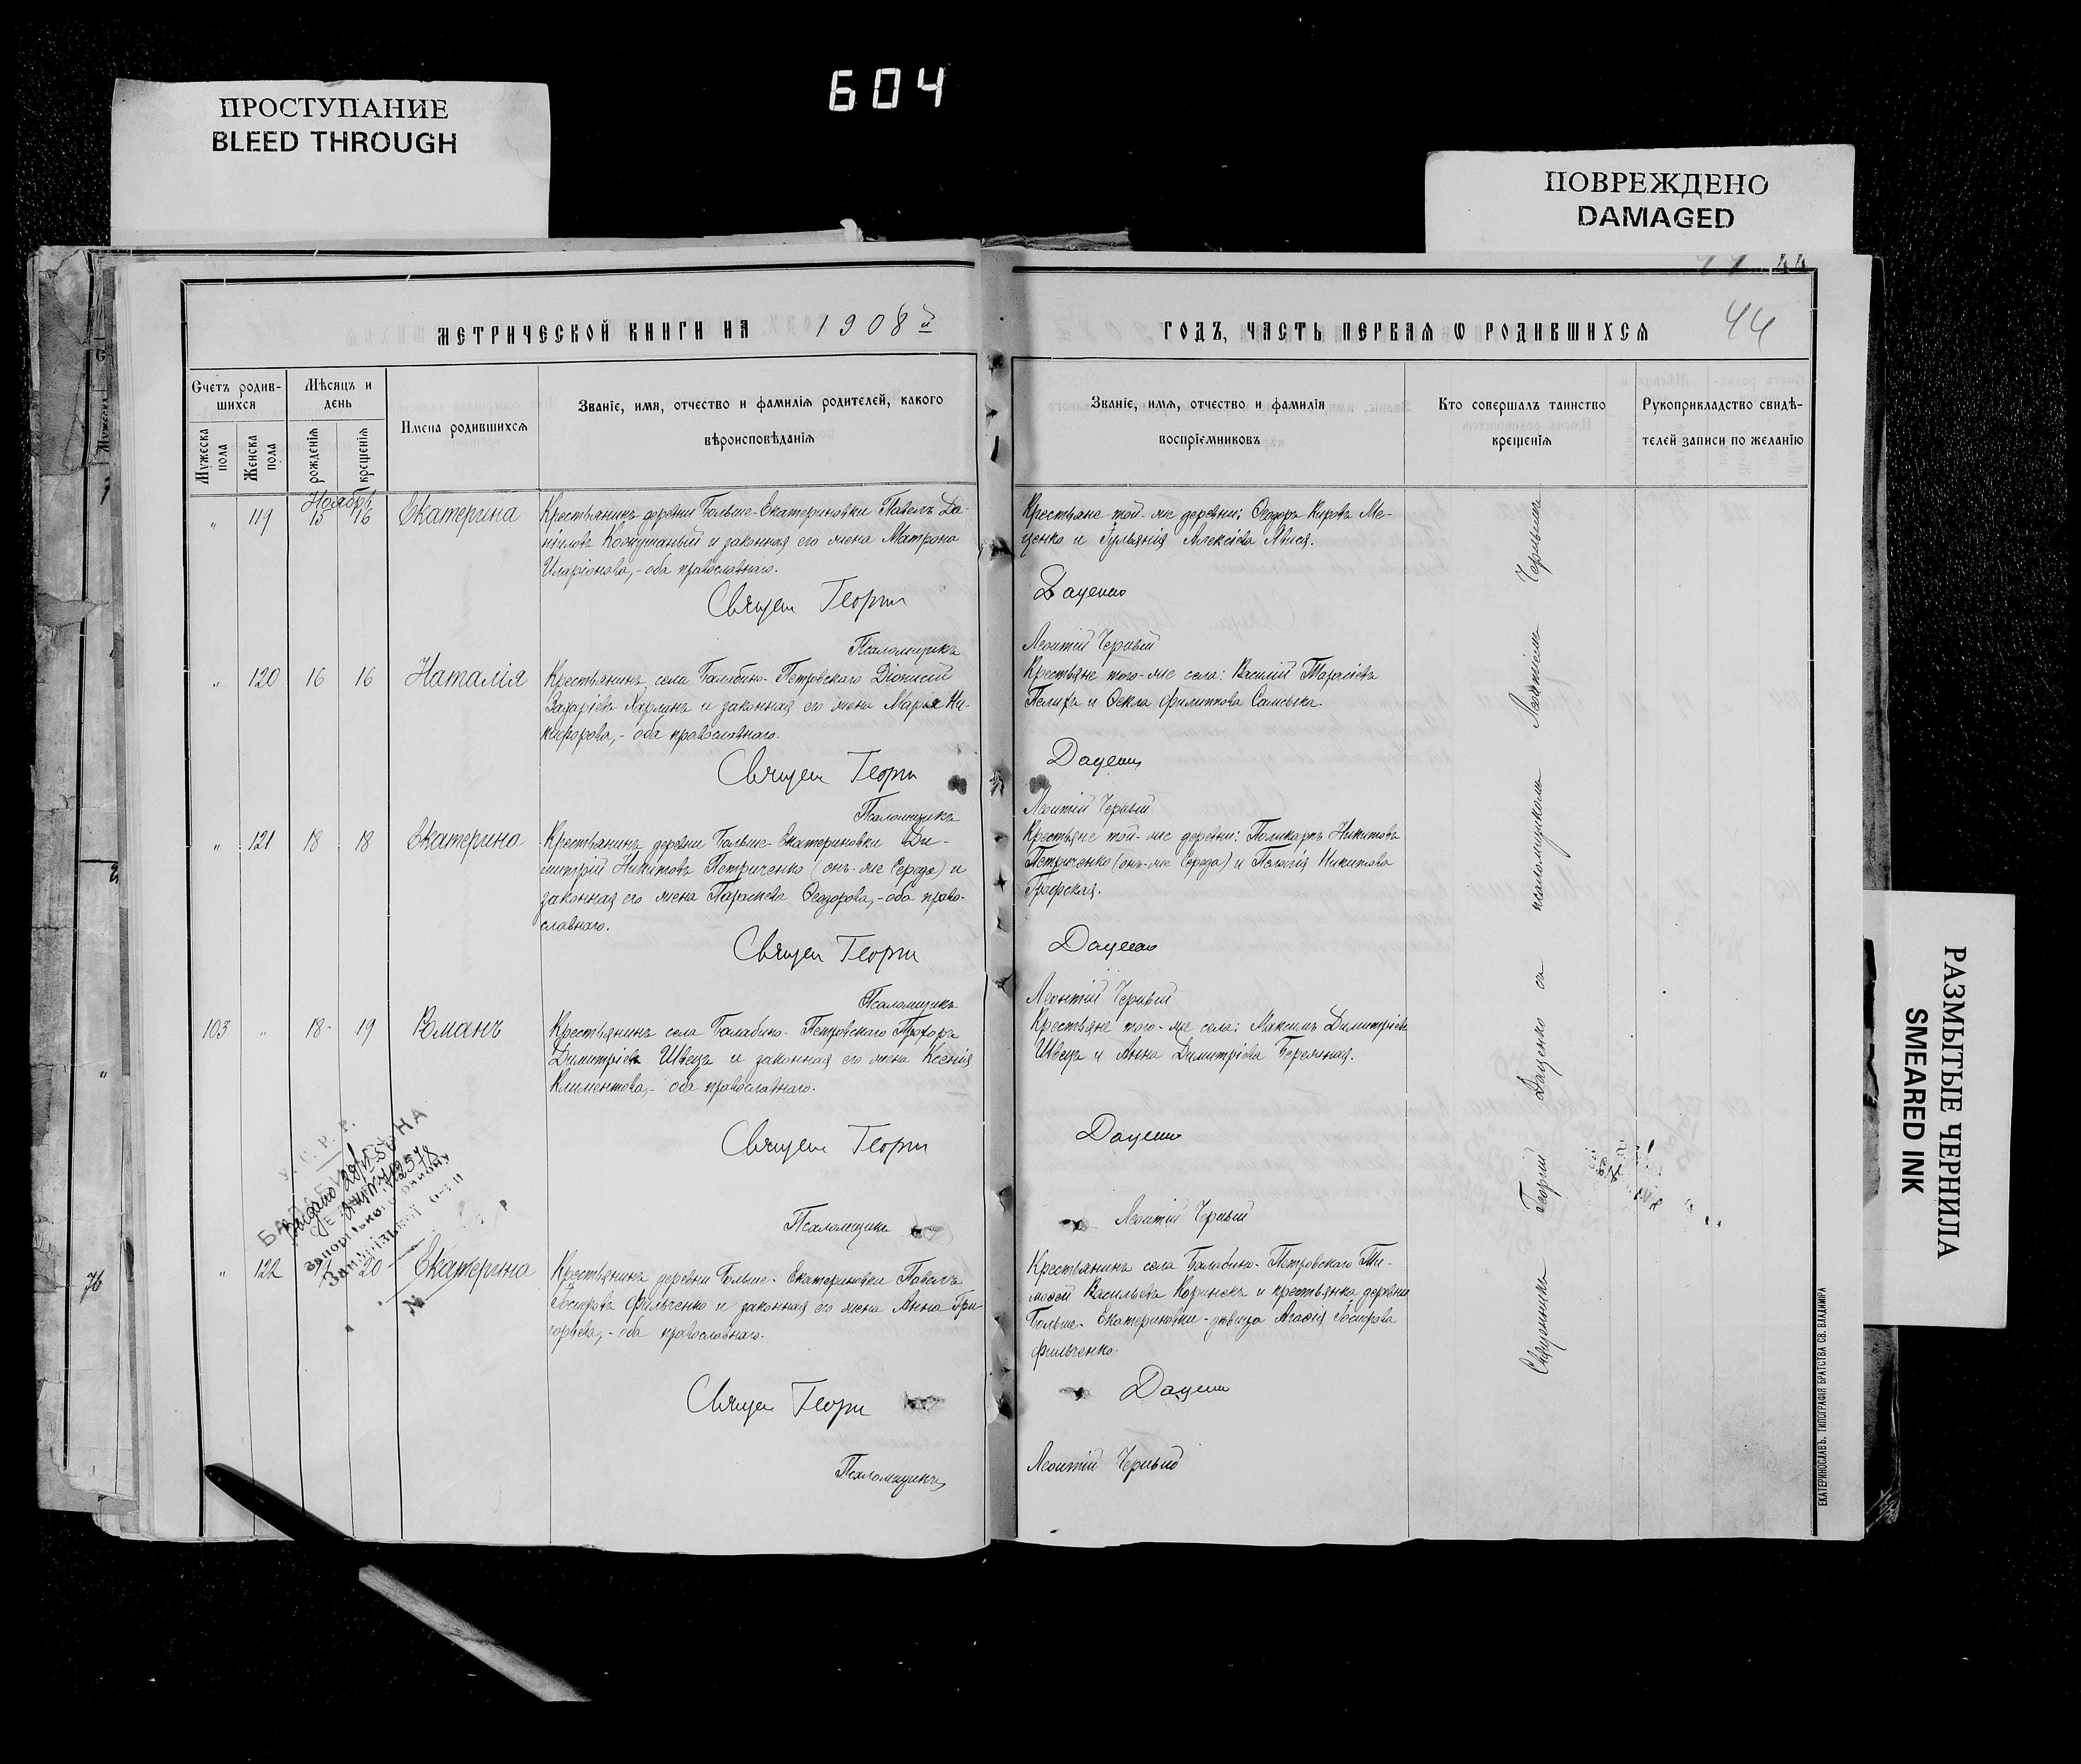 604
ПРОСТУПАНИЕ
BLEED THROUGH
ПОВРЕЖДЕНО
DAMAGED
РАЗМЫТЫЕ ЧЕРНИЛА
SMEARED INK
МЕТРИЧЕСКОЙ КНИГИ НА 1908й
Счетъ родив-
шихся
Мужеска пола
Женска пола
Мѣсяцъ и
день
рожденія
крещенія
Имена родившихся
Званіе, имя, отчество и фамилія родителей, какого
вѣроисповѣданія
Ноябрь
" 119 15 16 Екатерина
Крестьянинъ деревни Больше-Екатериновки Павелъ Да-
ниловъ и законная его жена Матрона
Иларіонова, - оба православнаго.
Священ Георги
Псаломщикъ
" 120 16 16 Наталія
Крестьянинъ села Балабино-Петровскаго Діонисій
Захаріевъ Харланъ и законная его жена Марія Ни-
кифорова, - оба православнаго.
Священ Георги
Псаломщикъ
" 121 18 18 Екатерина
Крестьянинъ деревни Больше-Екатериновки Ди-
митрій Никитовъ Петриченко (онъ-же Середа) и
законная его жена Параскева Ѳеодорова, - оба право-
славнаго.
Священ Георги
Псаломщикъ
103 " 18 19 Романъ
Крестьянинъ села Балабино-Петровскаго Прохоръ
Димитріевъ Швецъ и законная его жена Ксенія
Климентова, - оба православнаго.
Священ Георги
Псаломщикъ
" 122 20 Екатерина
Крестьянинъ деревни Больше-Екатериновки Павелъ
Фильченко и законная его жена Анна Гри-
горьева, - оба православнаго.
Священ Георги
Псаломщикъ
У.С.Р.Р.
Видано
76
44
44
ГОДЪ, ЧАСТЬ ПЕРВАЯ Ѡ РОДИВШИХСЯ
Званіе, имя, отчество и фамилія
воспріемниковъ
Кто совершалъ таинство
крещенія
Рукоприкладство свидѣ-
телей записи по желанію
Крестьяне той-же деревни: Ѳеодоръ Кировъ Ме-
ценко и Іульянія Алексіева
Даценко
Леонтій Черный
Крестьяне того-же села: Василій Тарасіевъ
и Ѳекла Филиппова
Даценко
Леонтій Черный
Крестьяне той-же деревни: Поликарпъ Никитовъ
Петриченко (онъ-же Середа) и Пелагія Никитова
Графская.
Даценко
Леонтій Черный
Крестьяне того-же села: Максимъ Димитріевъ
Швецъ и Анна Димитріева Бережная.
Даценко
Леонтій Черный
Крестьянинъ села Балабино-Петровскаго Ти-
моѳей Васильевъ и крестьянка деревни
Больше-Екатериновки - дѣвица Агафія
Фильченко.
Даценко
Леонтій Черный
Священникъ Георгій Даценко съ псаломщикомъ Леонтіемъ Чернымъ
ЕКАТЕРИНОСЛАВЪ. ТИПОГРАФІЯ БРАТСТВА СВ. ВЛАДИМІРА